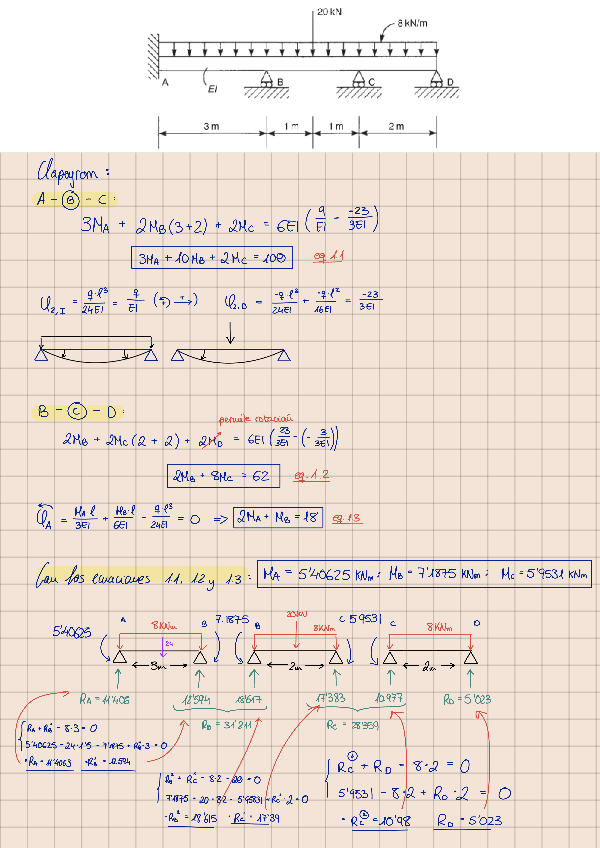 20 kN
8 kN/m
A EI B C D
3 m 1 m 1 m 2 m
Clapeyrom:
A - B - C:
3MA + 2MB(3+2) + 2MC = 6EI (9/EI - -23/3EI)
3MA + 10MB + 2MC = 100 eq 1.1
φ2,I = q·l³/24EI = 9/EI (↶ → +) φ2,D = -q·l³/24EI + -q·l²/16EI = -23/3EI
B - C - D:
permite rotación
2MB + 2MC(2+2) + 2MD = 6EI (23/3EI - (- 3/3EI))
2MB + 8MC = 62 eq. 1.2
φA = MA·l/3EI + MB·l/6EI - q·l³/24EI = 0 => 2MA + MB = 18 eq 1.3
Con las ecuaciones 1.1, 1.2 y 1.3: MA = 5'40625 KNm; MB = 7'1875 KNm; MC = 5'9531 KNm
5'40625 A 8 KNm B 7.1875 B 20KN 8KNm C 5'9531 C 8 KNm D
24
3m 2m 2m
RA = 11'406 12'594 18'617 17'383 10'977 RD = 5'023
RB = 31'211 RC = 28'359
RA + RB' - 8·3 = 0
5'40625 - 24·1'5 - 7'1875 + RB'·3 = 0
· RA = 11'4063 · RB' = 12'594
RB² + RC' - 8·2 - 20 = 0
7'1875 - 20 - 8·2 - 5'9531 + RC'·2 = 0
· RB² = 18'615 · RC' = 17'39
RC² + RD - 8·2 = 0
5'9531 - 8·2 + RD·2 = 0
· RC² = 10'98 RD = 5'023